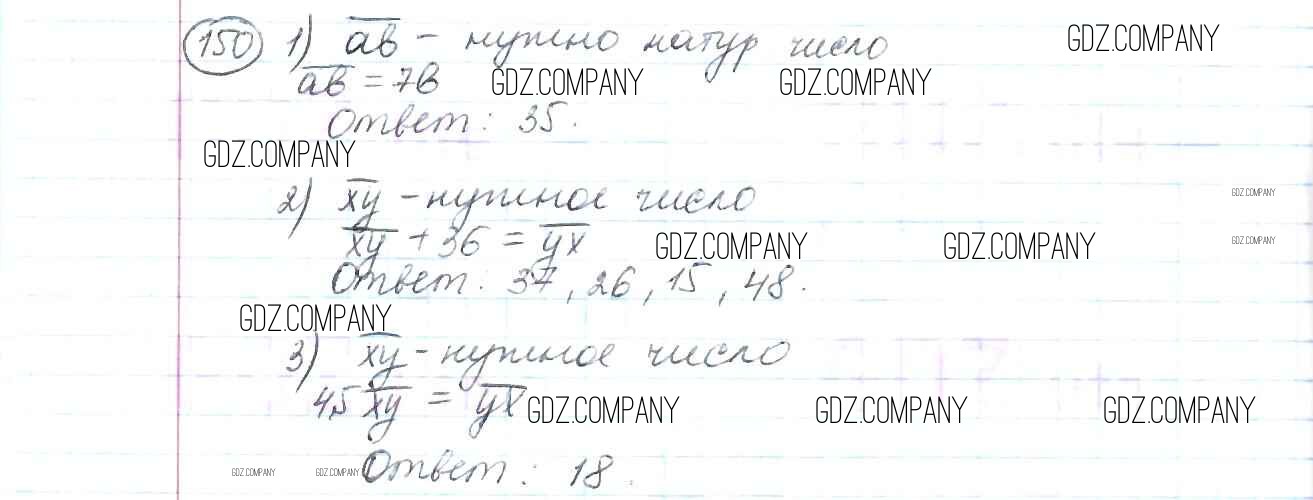 150 1) ab – нужно натур число GDZ.COMPANY
ab = 7b GDZ.COMPANY GDZ.COMPANY
Ответ: 35.
GDZ.COMPANY
2) xy – нужное число GDZ.COMPANY
xy + 36 = yx GDZ.COMPANY GDZ.COMPANY GDZ.COMPANY
Ответ: 37, 26, 15, 48.
GDZ.COMPANY
3) xy – нужное число
45 xy = yx GDZ.COMPANY GDZ.COMPANY GDZ.COMPANY
GDZ.COMPANY GDZ.COMPANY Ответ: 18.